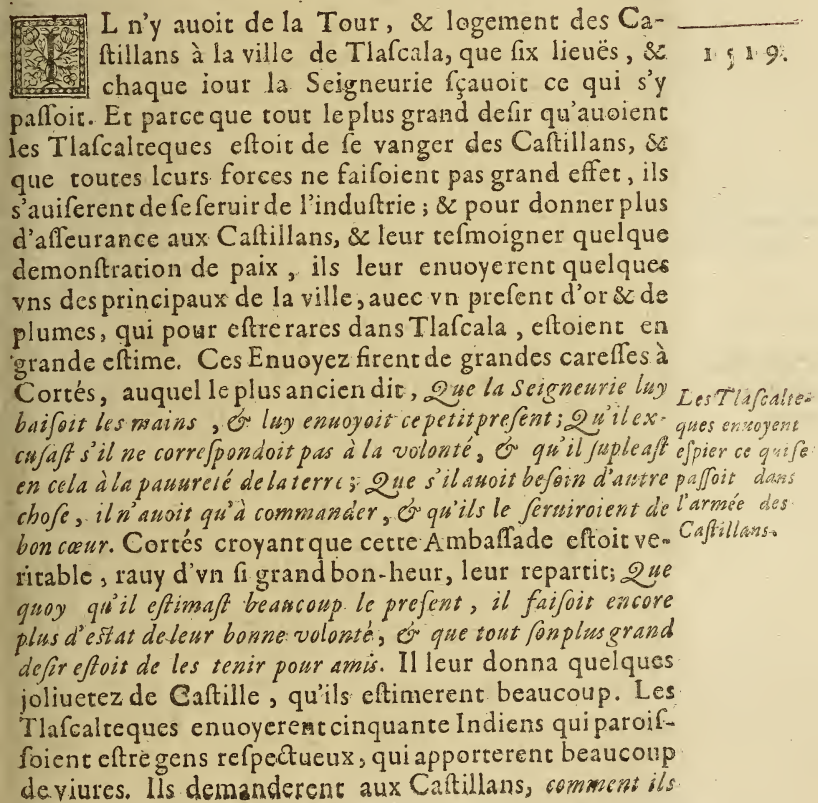 IL n'y auoit de la Tour, & logement des Ca-
ſtillans à la ville de Tlaſcala, que ſix lieuës, &
chaque iour la Seigneurie ſçauoit ce qui s'y
paſſoit. Et parce que tout le plus grand deſir qu'auoient
les Tlaſcalteques eſtoit de ſe vanger des Caſtillans, &
que toutes leurs forces ne faiſoient pas grand effet, ils
s'auiſerent de ſe ſeruir de l'induſtrie; & pour donner plus
d'aſſeurance aux Caſtillans, & leur teſmoigner quelque
demonſtration de paix, ils leur enuoyerent quelques
vns des principaux de la ville, auec vn preſent d'or & de
plumes, qui pour eſtre rares dans Tlaſcala, eſtoient en
grande eſtime. Ces Enuoyez firent de grandes careſſes à
Cortés, auquel le plus ancien dit, Que la Seigneurie luy
baiſoit les mains, & luy enuoyoit ce petit preſent; Qu'il ex-
cuſaſt s'il ne correſpondoit pas à la volonté, & qu'il ſupleaſt
en cela à la pauureté de la terre; Que s'il auoit beſoin d'autre
choſe, il n'auoit qu'à commander, & qu'ils le ſeruiroient de
bon cœur. Cortés croyant que cette Ambaſſade eſtoit ve-
ritable, rauy d'vn ſi grand bon-heur, leur repartit; Que
quoy qu'il eſtimaſt beaucoup le preſent, il faiſoit encore
plus d'eſtat de leur bonne volonté, & que tout ſon plus grand
deſir eſtoit de les tenir pour amis. Il leur donna quelques
joliuetez de Caſtille, qu'ils eſtimerent beaucoup. Les
Tlaſcalteques enuoyerent cinquante Indiens qui paroiſ-
ſoient eſtre gens reſpectueux, qui apporterent beaucoup
de viures. Ils demanderent aux Caſtillans, comment ils
1519.
Les Tlaſcalte-
ques enuoyent
eſpier ce qui ſe
paſſoit dans
l'armée des
Caſtillans.